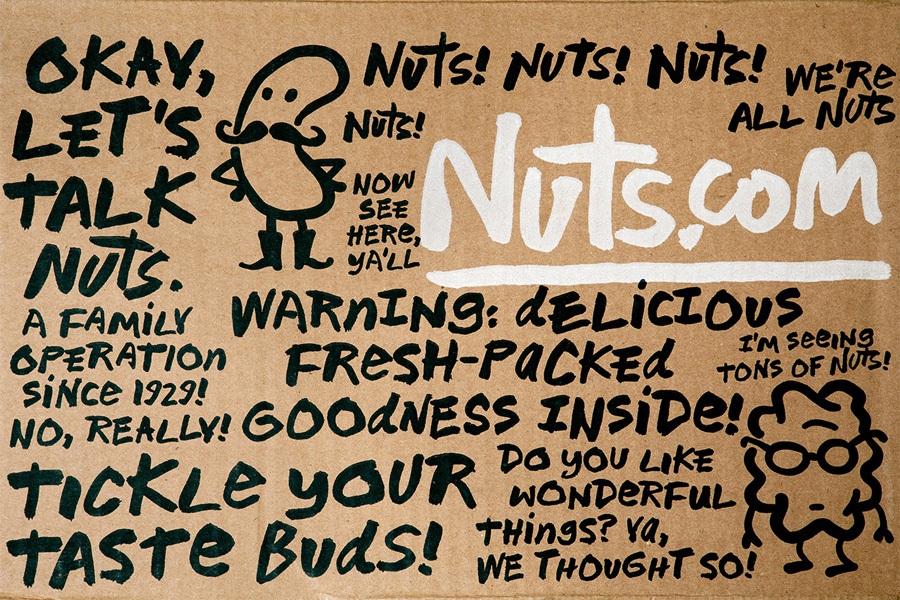 OKAY,
LET'S
TALK
NUTS.
A FAMILY
OPERATION
SINCE 1929!
NO, REALLY!
TICKLE YOUR
TASTE BUDS!
NUTS! NUTS! NUTS!
NUTS!
WE'RE
ALL NUTS
NOW
SEE
HERE,
YA'LL
NUTS.COM
WARNING: DELICIOUS
FRESH-PACKED
GOODNESS INSIDE!
I'M SEEING
TONS OF NUTS!
DO YOU LIKE
WONDERFUL
THINGS? YA,
WE THOUGHT SO!